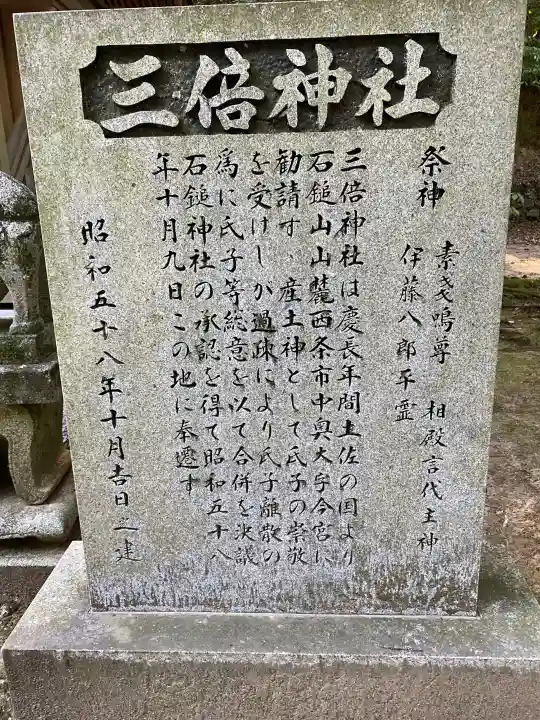 三倍神社
祭神 素戔嗚尊 相殿言代主神
伊藤八郎平霊
三倍神社は慶長年間土佐の国より
石鎚山山麓西条市中奥大字今宮に
勧請す、産土神として氏子の崇敬
を受けしか過疎により氏子離散の
為に氏子等総意を以て合併を決議
石鎚神社の承認を得て昭和五十八
年十月九日この地に奉遷す
昭和五十八年十月吉日之建